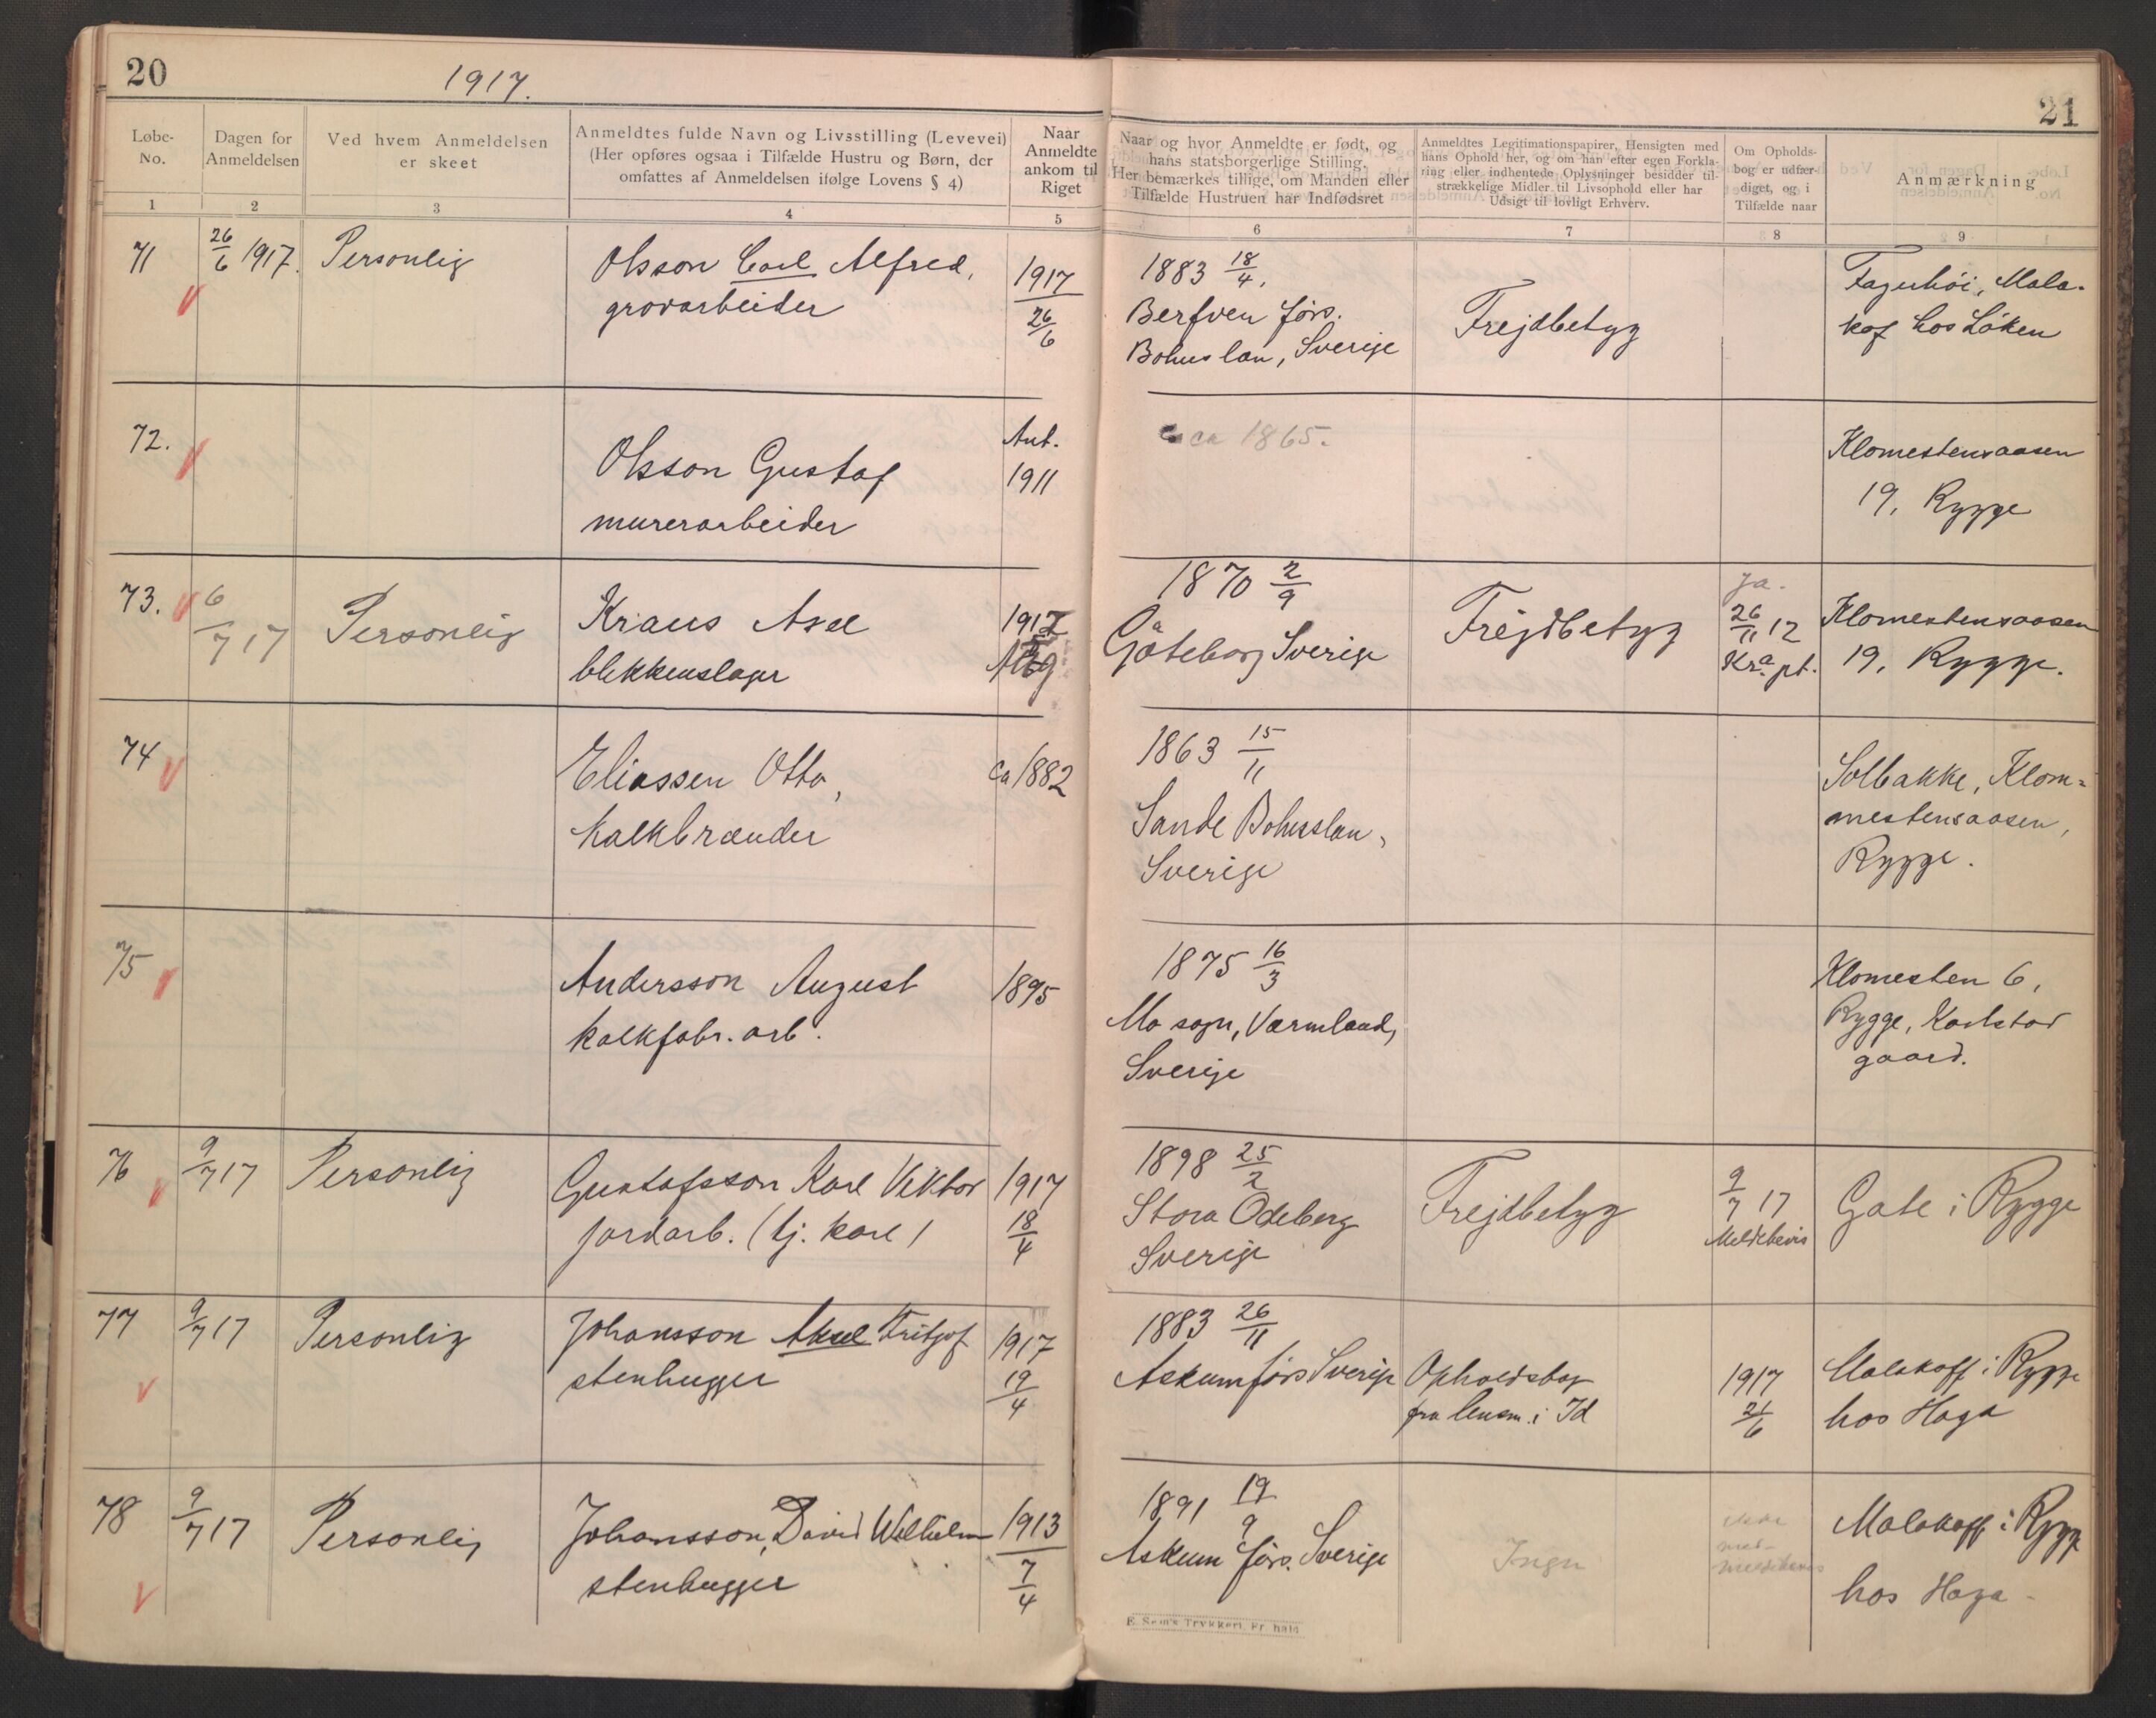 20
1917.
Løbe-
No.
Dagen for
Anmeldelsen
Ved hvem Anmeldelsen
er skeet
Anmeldtes fulde Navn og Livsstilling (Levevei)
(Her opføres ogsaa i Tilfælde Hustru og Børn, der
omfattes af Anmeldelsen ifølge Lovens § 4)
Naar
Anmeldte
ankom til
Riget
1
2
3
4
5
71
26/6 1917.
Personlig
Olsson Carl Alfred,
grovarbeider
1917
26/6
72.
Olsson Gustaf
murerarbeider
Ant.
1911
73.
6/7 17
Personlig
Kraus Axel
blikkenslager
1912
74
Eliassen Otto,
kalkbrænder
ca 1882
75
Andersson August
kalkfabr. arb.
1895
76
9/7 17
Personlig
Gustafsson Karl Viktor
jordarb. (tj. karl)
1917
18/4
77
9/7 17
Personlig
Johansson Aksel Fritjof
stenhugger
1917
19/4
78
9/7 17
Personlig
Johansson, David Wilhelm
stenhugger
1913
7/4
21
Naar og hvor Anmeldte er født, og
hans statsborgerlige Stilling.
Her bemærkes tillige, om Manden eller
Tilfælde Hustruen har Indfødsret
Anmeldtes Legitimationspapirer, Hensigten med
hans Ophold her, og om han efter egen Forkla-
ring eller indhentede Oplysninger besidder til-
strækkelige Midler til Livsophold eller har
Udsigt til lovligt Erhverv.
Om Opholds-
bog er udfær-
diget, og i
Tilfælde naar
Anmærkning
6
7
8
9
1883 18/4.
Berfven förs.
Bohuslan, Sverige
Frejdbetyg
Fagerhöi, Mala-
kof hos Löken
ca 1865.
Klomestensaasen
19, Rygge
1870 2/9
Göteborg Sverige
Frejdbetyg
Ja.
26/11 12
Kra. pt.
Klomestensaasen
19, Rygge.
1863 15/11
Sande Bohuslan,
Sverige
Solbakke, Klom-
mestensaasen,
Rygge.
1875 16/3
Mo sogn, Värmland,
Sverige
Klomesten 6,
Rygge, Karlstad
gaard.
1898 25/2
Stora Ödeberg
Sverige
Frejdbetyg
9/7 17
Meldebevis
Gate i Rygge
1883 26/11
Askumförs Sverige
Opholdsbog
fra lensm. i Id
1917
21/6
Malakoff i Rygge
hos Haga
1891 19/9
Askum förs. Sverige
Ingen
meldebevis
Malakoff i Rygge
hos Haga
E. Sem's Trykkeri, Fr.hald